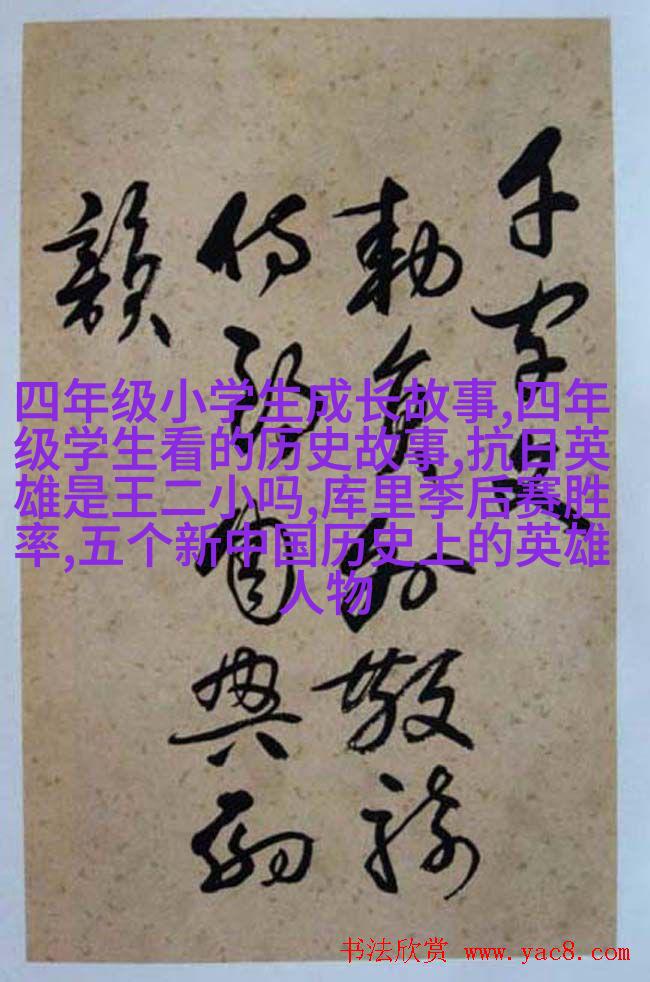 千字文
勅員外散騎
侍郎周興嗣
韻
四年级小学生成长故事,四年
级学生看的历史故事,抗日英
雄是王二小吗,库里季后赛胜
率,五个新中国历史上的英雄
人物
书法欣赏 www.yac8.com